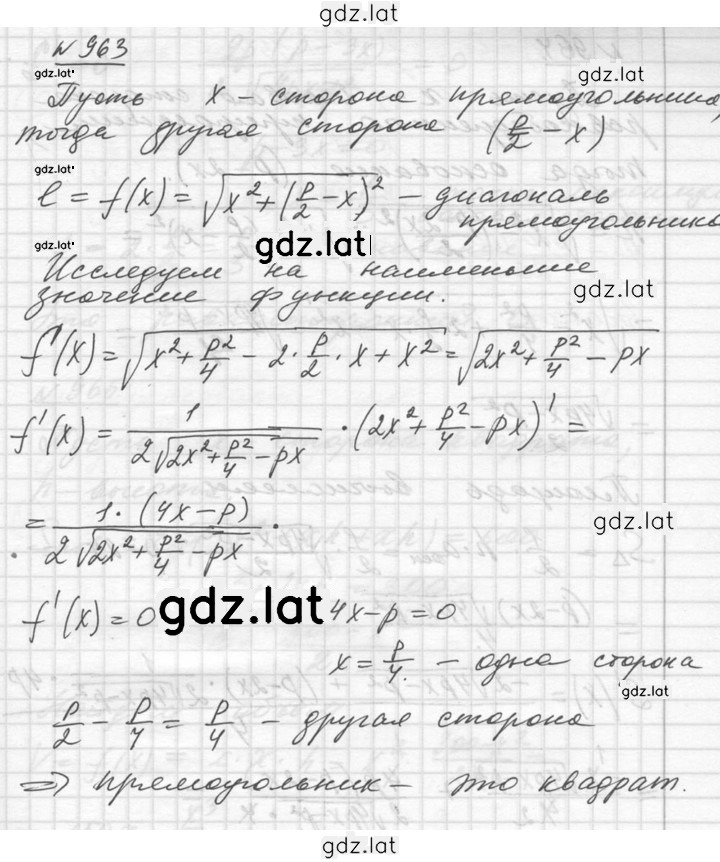 gdz.lat
№ 963
gdz.lat
gdz.lat
Пусть x – сторона прямоугольника,
тогда другая сторона (p/2 – x)
gdz.lat
l = f(x) = √(x² + (p/2 – x)²) – диагональ
прямоугольника
gdz.lat
gdz.lat
Исследуем на наименьшее
значение функции.
gdz.lat
f(x) = √(x² + p²/4 – 2 · p/2 · x + x²) = √(2x² + p²/4 – px)
f'(x) = 1/(2√(2x² + p²/4 – px)) · (2x² + p²/4 – px)' =
= 1 · (4x – p)/(2√(2x² + p²/4 – px)) .
gdz.lat
f'(x) = 0 4x – p = 0
gdz.lat
x = p/4 – одна сторона
gdz.lat
p/2 – p/4 = p/4 – другая сторона
⇒ прямоугольник – это квадрат.
gdz.lat